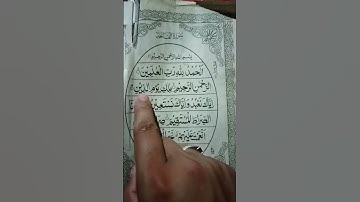 سورة الفاتحة
بسم الله الرحمن الرحيم
اَلْحَمْدُ لِلّٰهِ رَبِّ الْعٰلَمِيْنَ
الرَّحْمٰنِ الرَّحِيْمِ مٰلِكِ يَوْمِ الدِّيْنِ
اِيَّاكَ نَعْبُدُ وَاِيَّاكَ نَسْتَعِيْنُ
الصِّرَاطَ الْمُسْتَقِيْمَ
اَنْعَمْتَ عَلَيْهِمْ